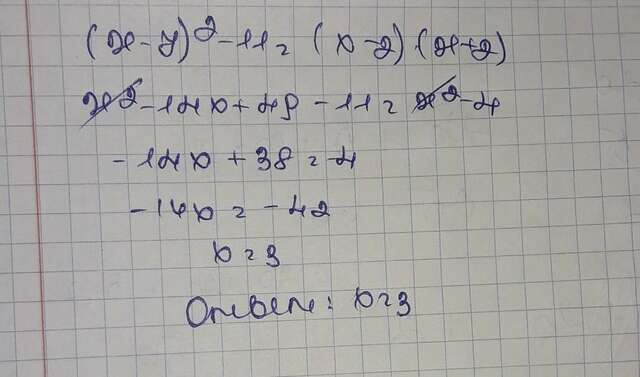 (x-7)²-11=(x-2)(x+2)
x²-14x+49-11=x²-4
-14x+38=-4
-14x=-42
x=3
Ответ: x=3